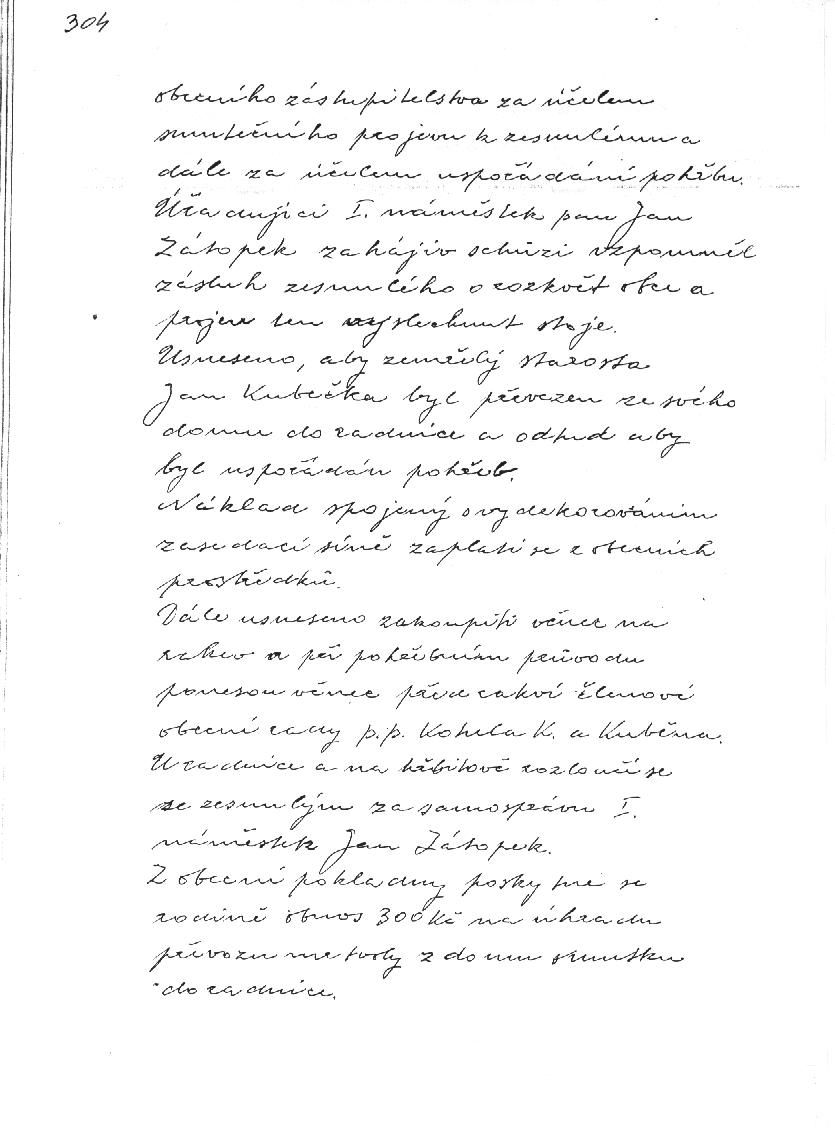 304
obecního zástupitelstva za účelem
smutečního projevu k zesnulému a
dále za účelem uspořádání pohřbu.
Úřadující I. náměstek pan Jan
Zátopek zahájiv schůzi vzpomněl
zásluh zesnulého o rozkvět obce a
projev ten vyslechnut stoje.
Usneseno, aby zemřelý starosta
Jan Kubečka byl převezen ze svého
domu do radnice a odtud aby
byl uspořádán pohřeb.
Náklad spojený s vydekorováním
zasedací síně zaplatí se z obecních
prostředků.
Dále usneseno zakoupiti věnec na
rakev a při pohřebním průvodu
ponesou věnec před rakví členové
obecní rady p.p. Kohela K. a Kuběna.
U radnice a na hřbitově rozloučí se
se zesnulým za samosprávu I.
náměstek Jan Zátopek.
Z obecní pokladny poskytne se
rodině obnos 300 Kč na úhradu
převozu mrtvoly z domu smutku
do radnice.